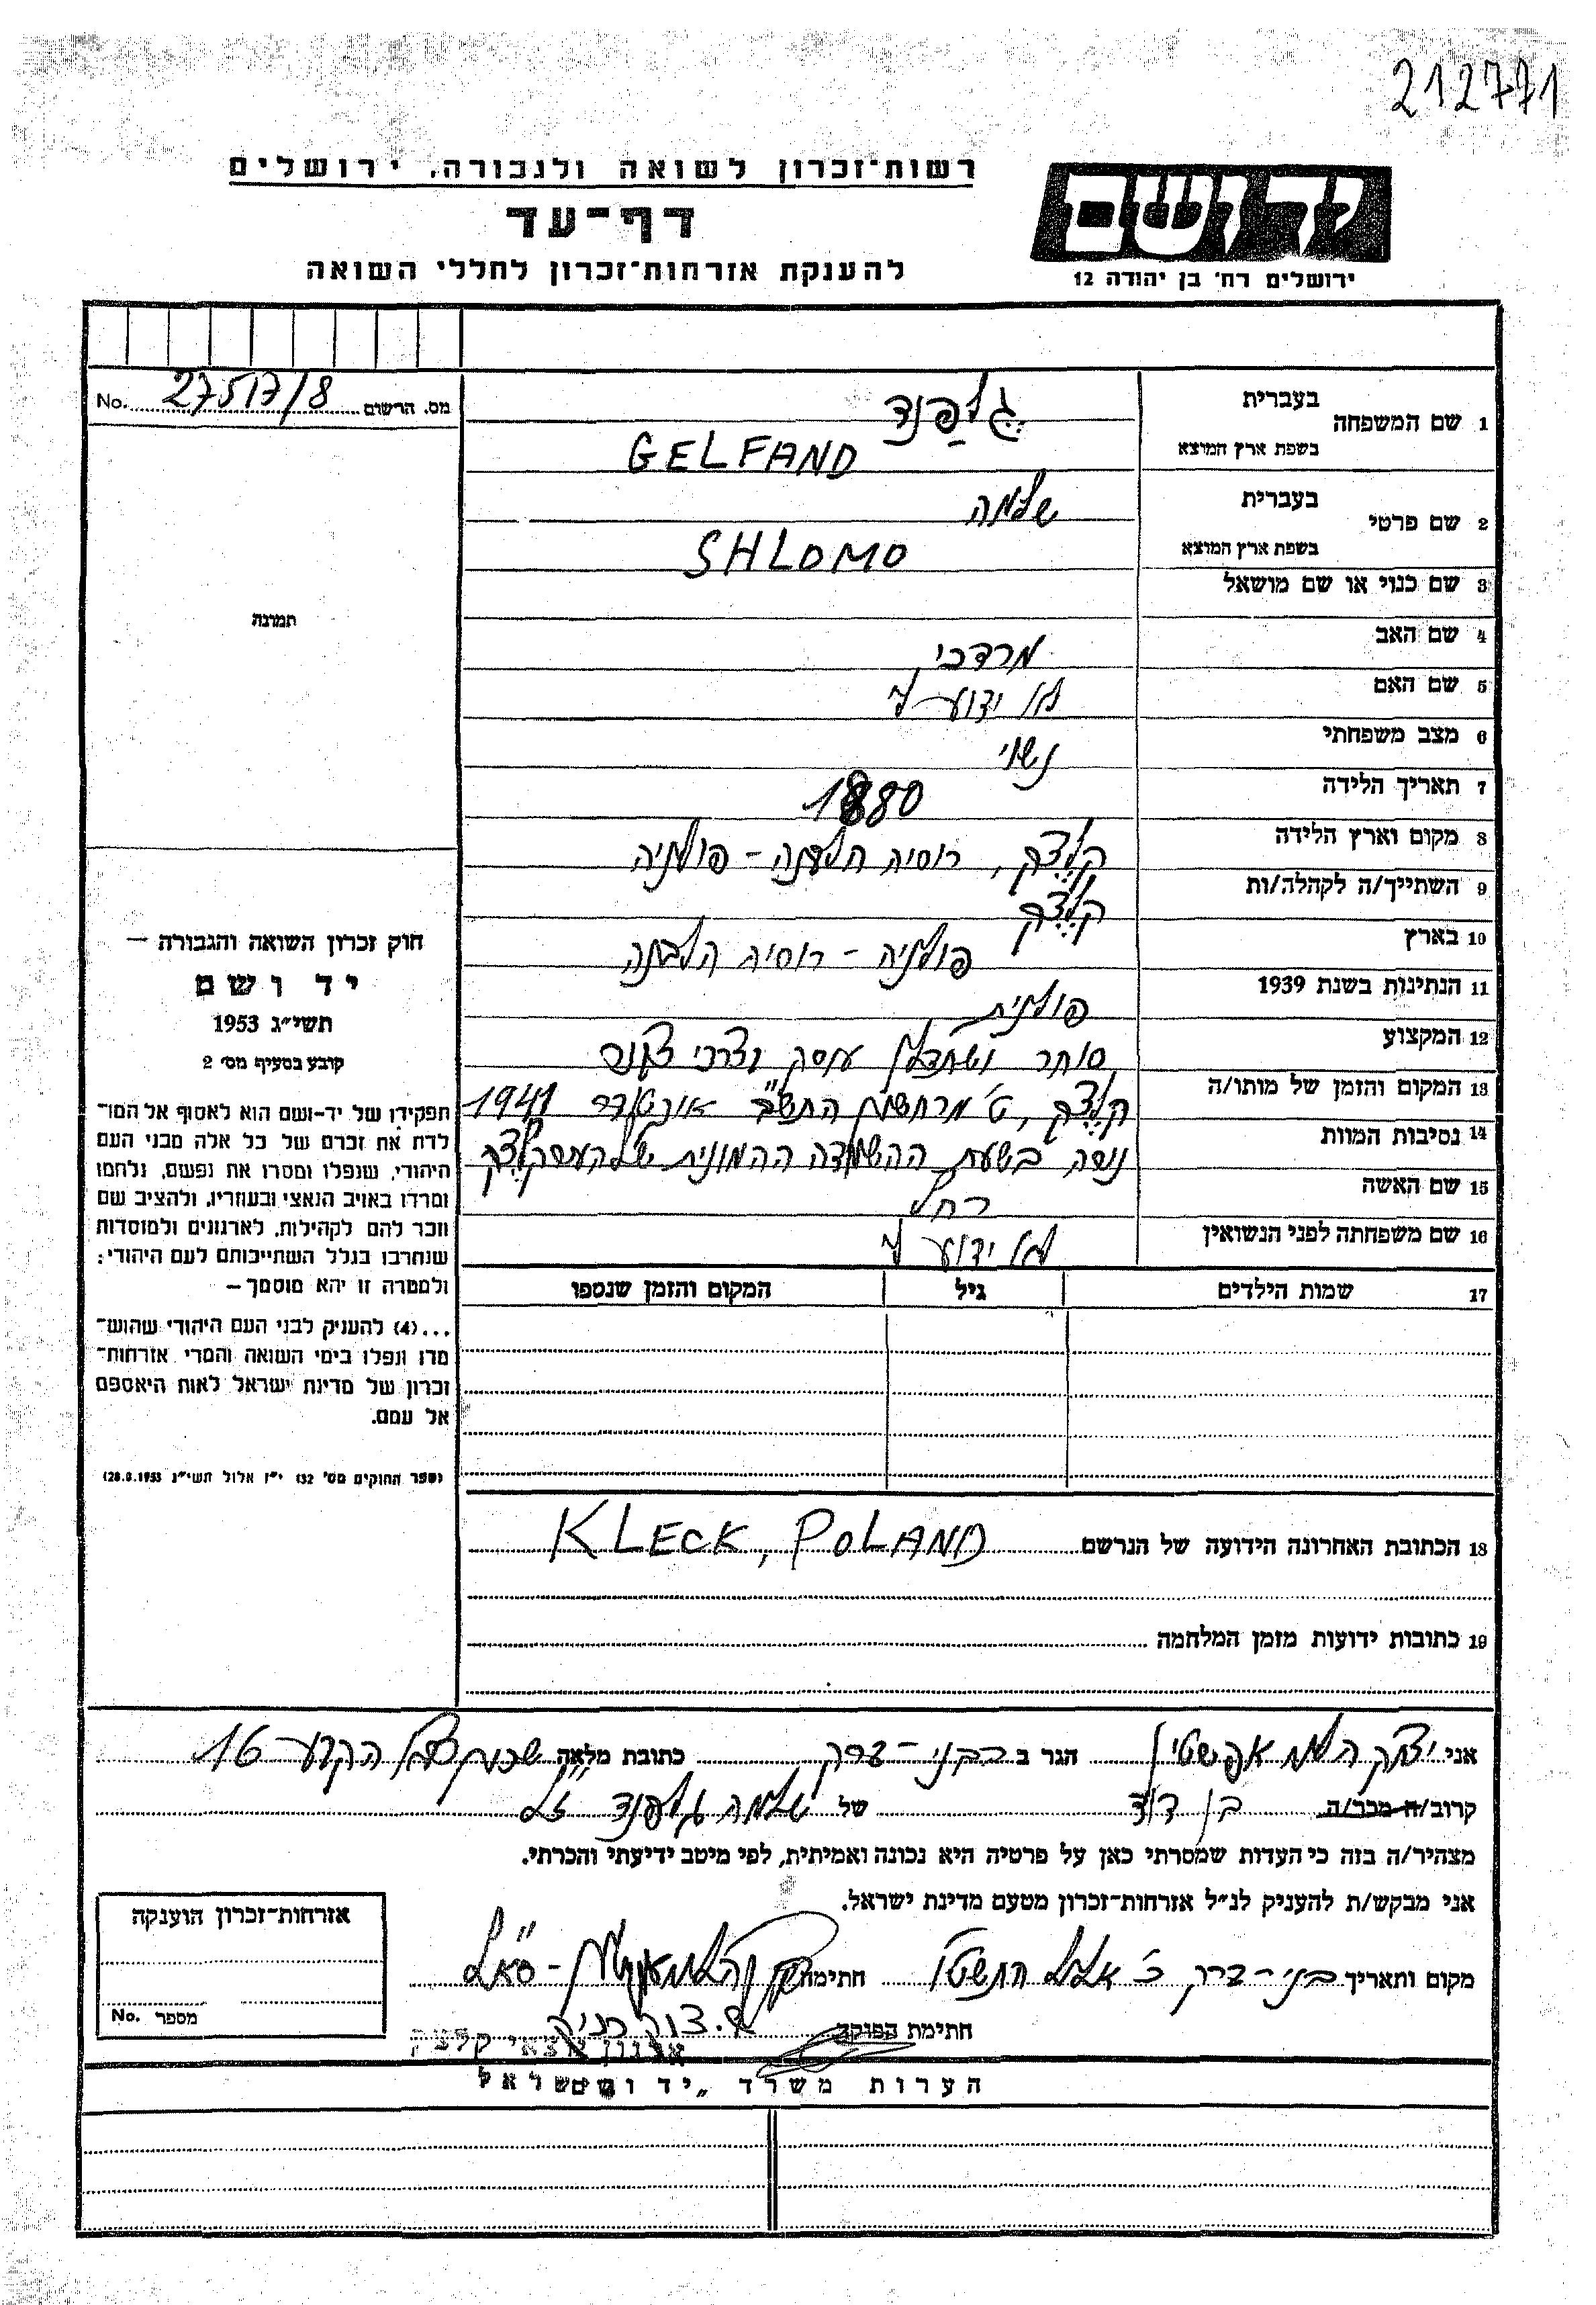 212771
רשות־זכרון לשואה ולגבורה, ירושלים
דף־עד
להענקת אזרחות־זכרון לחללי השואה
יד ושם
ירושלים רח׳ בן יהודה 12
מס. הרשום 27517/8 No.
1 שם המשפחה
בעברית גֶלפַנד
בשפת ארץ המוצא GELFAND
2 שם פרטי
בעברית שלמה
בשפת ארץ המוצא SHLOMO
3 שם כנוי או שם מושאל
4 שם האב מרדכי
5 שם האם לא ידוע לי
6 מצב משפחתי נשוי
7 תאריך הלידה 1880
8 מקום וארץ הלידה קלֶצק, רוסיה הלבנה - פולניה
9 השתייך/ה לקהלה/ות קלֶצק
10 בארץ פולניה - רוסיה הלבנה
11 הנתינות בשנת 1939 פולנית
12 המקצוע סוחר ושתדלן עוסק וצרכי
13 המקום והזמן של מותו/ה קלֶצק, ט׳ מרחשון התש״ב אוקטובר 1941
14 נסיבות המוות נספה בשעת ההשמדה ההמונית של
15 שם האשה רחל
16 שם משפחתה לפני הנשואין לא ידוע לי
17 שמות הילדים גיל המקום והזמן שנספו
18 הכתובת האחרונה הידועה של הנרשם KLECK, POLAND
19 כתובות ידועות מזמן המלחמה
תמונה
חוק זכרון השואה והגבורה —
יד ושם
תשי״ג 1953
קובע בסעיף מס׳ 2
תפקידו של יד-ושם הוא לאסוף אל המו־
לדת את זכרם של כל אלה מבני העם
היהודי, שנפלו ומסרו את נפשם, נלחמו
ומרדו באויב הנאצי ובעוזריו, ולהציב שם
וזכר להם לקהילות, לארגונים ולמוסדות
שנחרבו בגלל השתייכותם לעם היהודי;
ולמטרה זו יהא מוסמך —
...(4) להעניק לבני העם היהודי שהוש־
מדו ונפלו בימי השואה והמרי אזרחות־
זכרון של מדינת ישראל לאות היאספם
אל עמם.
(ספר החוקים מס׳ 132 י״ז אלול תשי״ג 28.8.1953)
אני יצחק הלוי אפשטיין הגר ב בבני-ברק כתובת מלאה הקרע-16
קרוב/ה מכר/ה בן דוד של שלמה גלפנד ז״ל
מצהיר/ה בזה כי העדות שמסרתי כאן על פרטיה היא נכונה ואמיתית, לפי מיטב ידיעתי והכרתי.
אני מבקש/ת להעניק לנ״ל אזרחות־זכרון מטעם מדינת ישראל.
מקום ותאריך בני-ברק כ׳ אלול התשט״ו חתימה
חתימת הפוקד
ארגון יוצאי קלצק
אזרחות־זכרון הוענקה
מספר No.
הערות משרד „יד ושם
ישראל